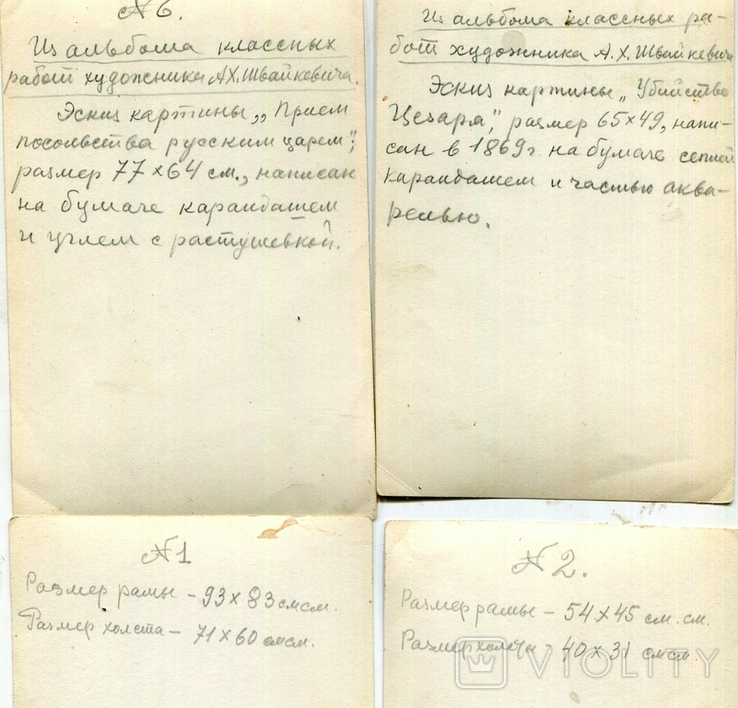 №6.
Из альбома классных
работ художника А.Х.Швайкевича.
Эскиз картины „Прием
посольства русским царем",
размер 77×64 см., написан
на бумаге карандашем
и углем с растушевкой.
Из альбома классных ра-
бот художника А.Х.Швайкевича
Эскиз картины „Убийство
Цезаря", размер 65×49, напи-
сан в 1869г. на бумаге сепией
карандашем и частью аква-
релью.
№1
Размер рамы – 93×83 смсм.
Размер холста – 71×60 смсм.
№2.
Размер рамы – 54×45 см. см.
Размер холста – 40×31 смсм.
VIOLITY